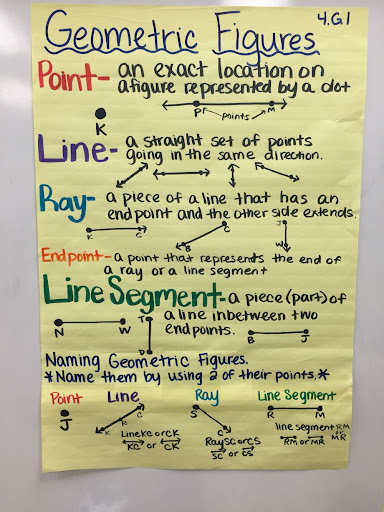 4.G.1
Geometric Figures
Point- an exact location on
a figure represented by a dot
K
P points M
Line- a straight set of points
going in the same direction.
Ray- a piece of a line that has an
endpoint and the other side extends.
K C B C J W
Endpoint- a point that represents the end of
a ray or a line segment
Line Segment- a piece (part) of
a line inbetween two
endpoints.
N W T D B J
Naming Geometric Figures.
*Name them by using 2 of their points.*
Point Line Ray Line Segment
J K C S C R M
Line KC or CK
KC or CK
Ray SC or CS
SC or CS
line segment RM
or
MR
RM or MR